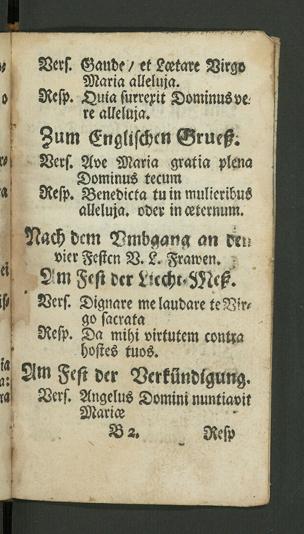 Vers. Gaude / et Lætare Virgo
Maria alleluja.
Resp. Quia surrexit Dominus ve-
re alleluja.
Zum Englischen Grueß.
Vers. Ave Maria gratia plena
Dominus tecum
Resp. Benedicta tu in mulieribus
alleluja. oder in æternum.
Nach dem Vmbgang an den
vier Festen V. L. Frawen.
Am Fest der Liecht-Meß.
Vers. Dignare me laudare te Vir-
go sacrata
Resp. Da mihi virtutem contra
hostes tuos.
Am Fest der Verkündigung.
Vers. Angelus Domini nuntiavit
Mariæ
B 2. Resp